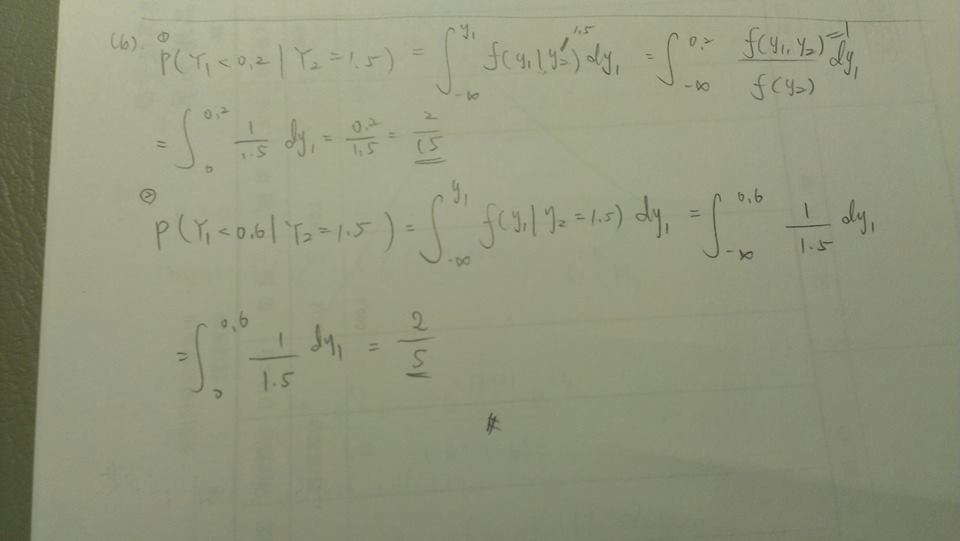 (b). ① P(Y₁<0,2 | Y₂=1.5) = ∫_{-∞}^{y₁} f(y₁|y₂^{1,5}) dy₁ = ∫_{-∞}^{0,2} f(y₁,y₂)=1 / f(y₂) dy₁
= ∫_0^{0,2} 1/1.5 dy₁ = 0,2/1.5 = 2/15
② P(Y₁<0.6 | Y₂=1.5) = ∫_{-∞}^{y₁} f(y₁|y₂=1.5) dy₁ = ∫_{-∞}^{0,6} 1/1.5 dy₁
= ∫_0^{0,6} 1/1.5 dy₁ = 2/5
#